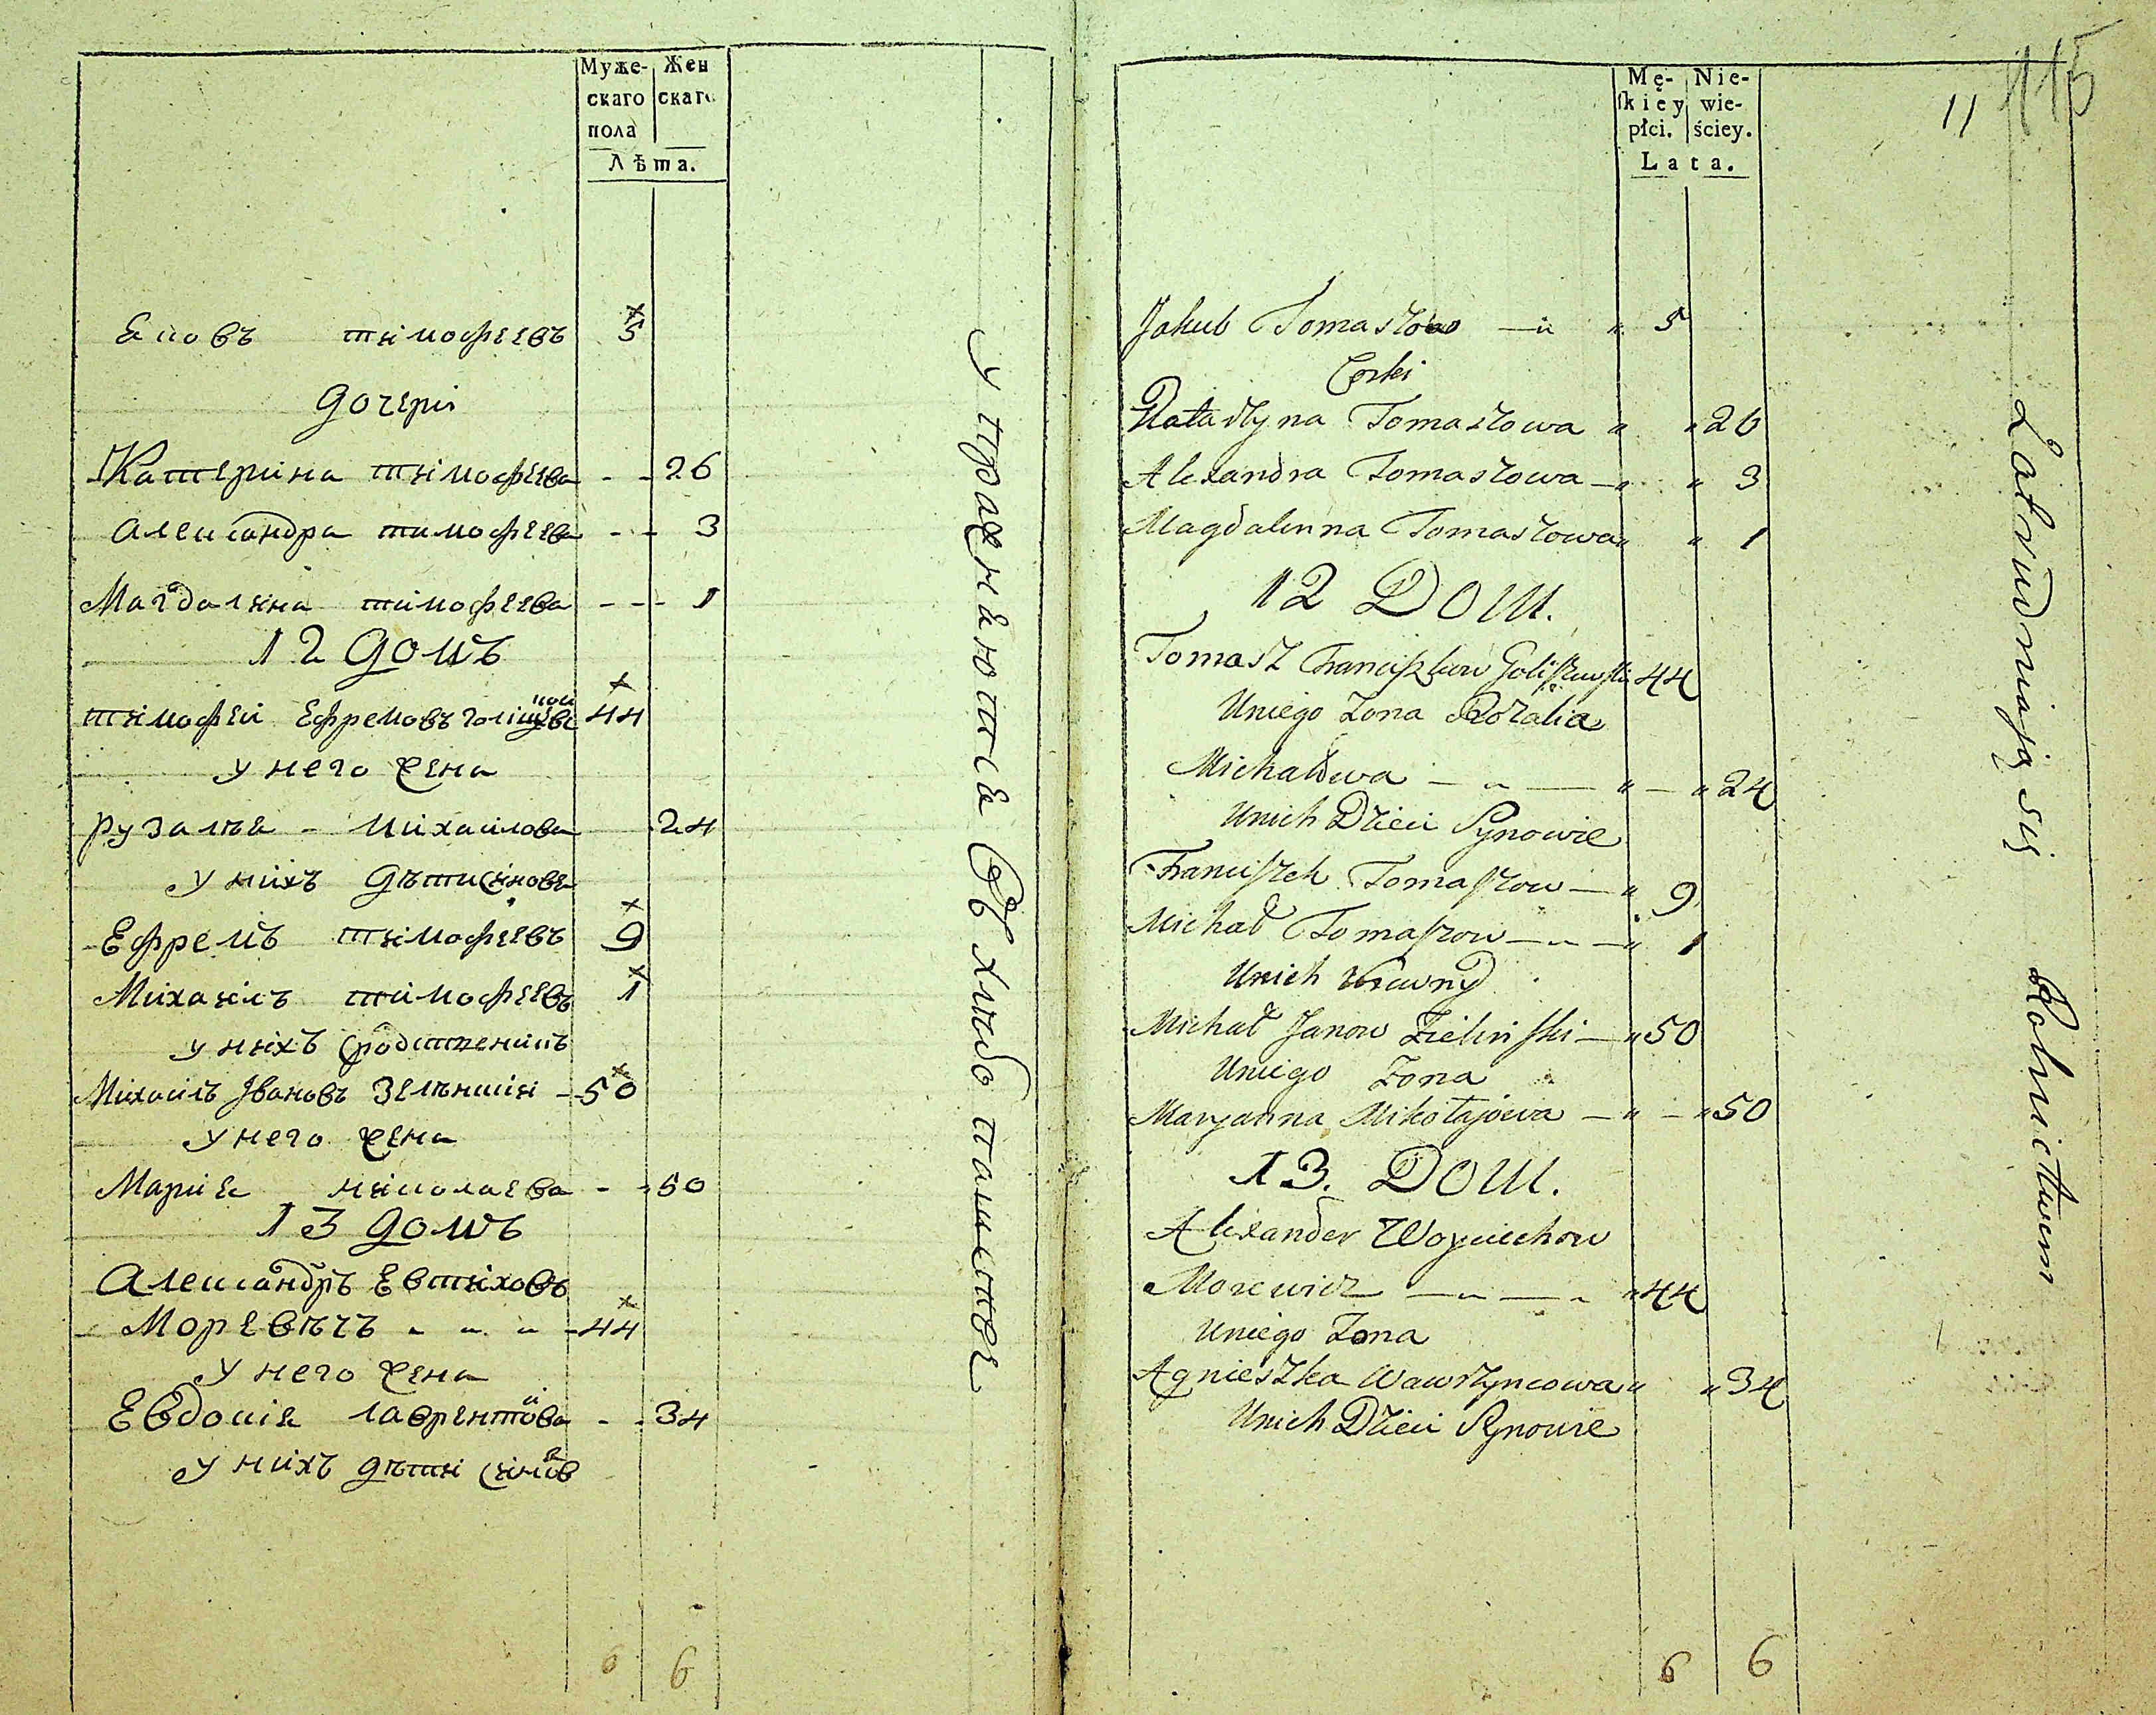 Муже- Жен
скаго скаго
пола
Лѣта.
Яковъ тимофеевъ 5
Дочери
Катерина тимофеева - - 26
Александра тимофеева - - 3
Магдалина тимофеева - - - 1
12 домъ
тимофей Ефремовъ 44
у него жена
рузалѣя - михайлова 24
у нихъ дѣти синовя
Ефремъ тимофеевъ 9
Михаилъ тимофеевъ 1
у нихъ
Михаилъ Ивановъ - 50
у него жена
Мария николаева - - 50
13 домъ
Александръ Евтиховъ
Моревѣчъ " " " - 44
у него жена
Евдокия лаврентова - - 34
у нихъ дѣти
6 6
упражняются въ хлѣбопашестве
115
11
Mę- Nie-
ſkiey wie-
płci. ściey.
Lata.
Jakub Tomaszow — " " 5
Corki
Katarzyna Tomaszowa " " 26
Alexandra Tomaszowa — " " 3
Magdalenna Tomaszowa " " 1
12 Dom.
Tomasz Franciszkow 44
Uniego Zona Rozalia
Michałowa — " — " — " 24
Unich Dzieci Synowie
Franciſzek Tomaſzow — " 9
Michał Tomaſzow — " — " 1
Unich Krewny
Michał Janow Zielinſki — " 50
Uniego Zona
Maryanna Mikołajowa — " — " 50
13. Dom.
Alexander Woyciechow
Morewicz — " — " " 44
Uniego Zona
Agnieszka Wawrzyncowa " " 34
Unich Dzieci Synowie
6 6
Zatrudniają się Rolnictwem